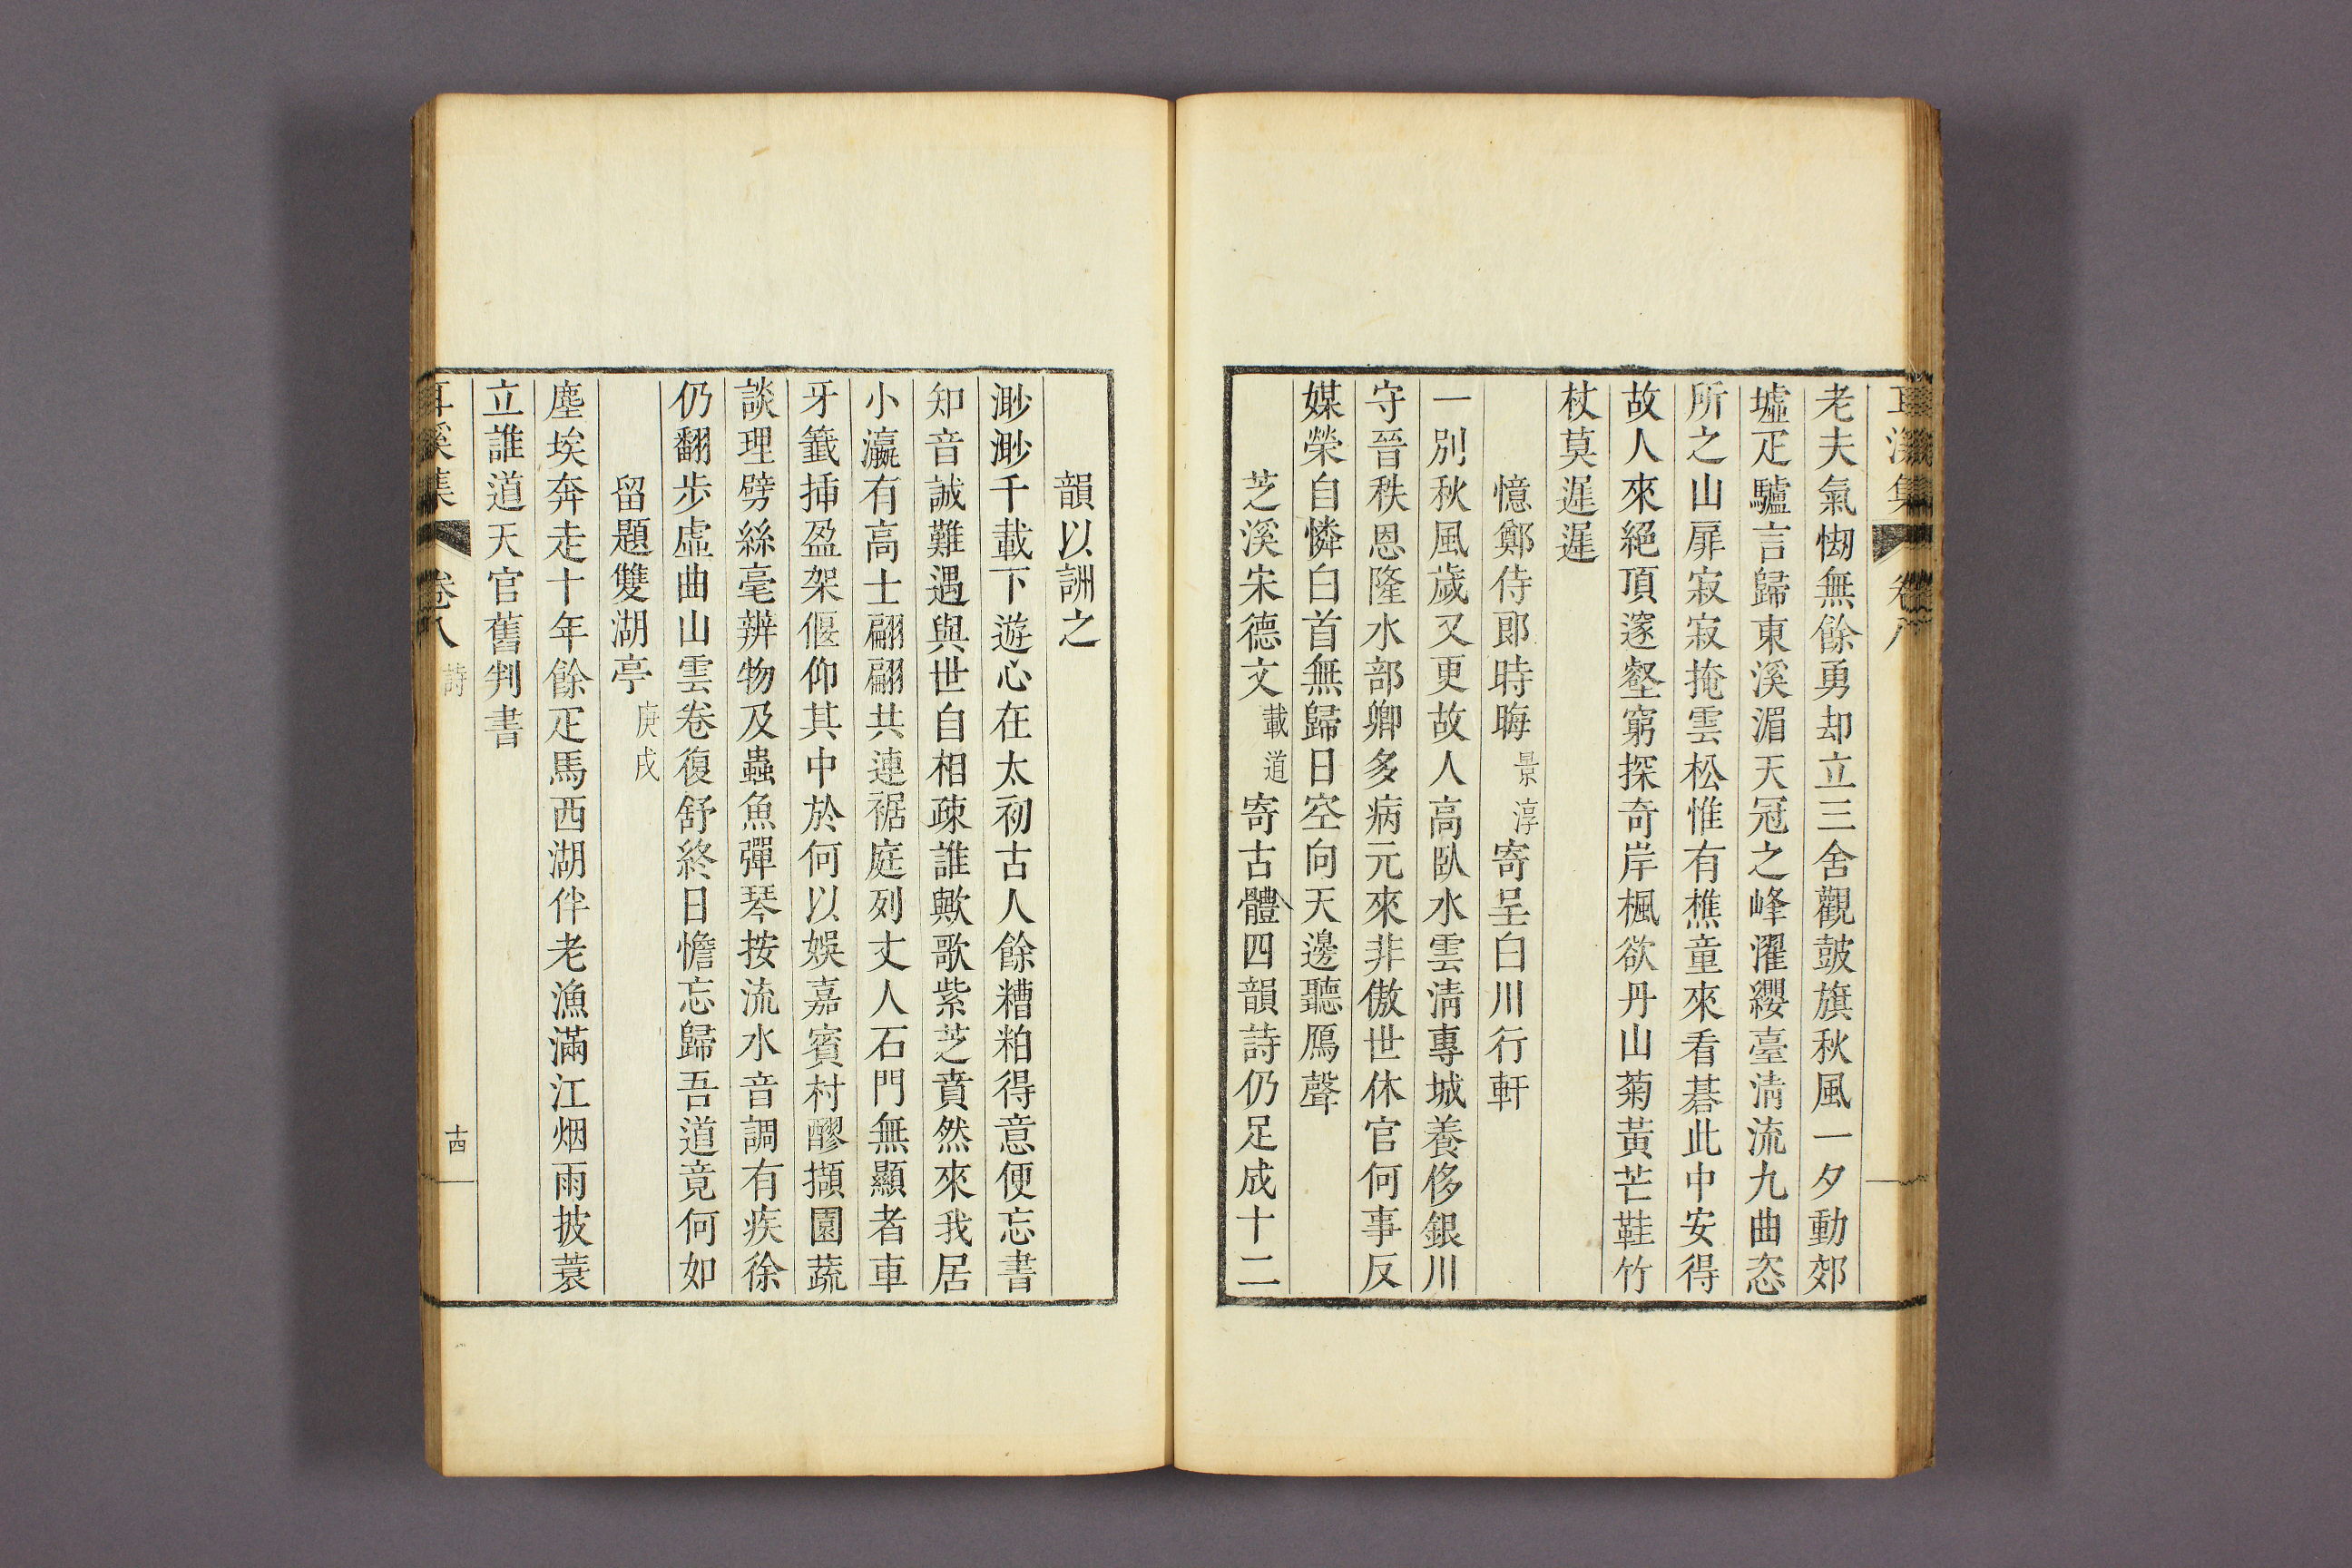 耳溪集 卷八
老夫氣㤼無餘勇却立三舍觀皷旗秋風一夕動郊
墟疋驢言歸東溪湄天冠之峰濯纓臺淸流九曲恣
所之山扉寂寂掩雲松惟有樵童來看碁此中安得
故人來絕頂邃壑窮探奇岸楓欲丹山菊黃芒鞋竹
杖莫遲遲
憶鄭侍郞時晦景淳寄呈白川行軒
一別秋風歲又更故人高臥水雲淸專城養侈銀川
守晉秩恩隆水部卿多病元來非傲世休官何事反
媒榮自憐白首無歸日空向天邊聽鴈聲
芝溪宋德文載道寄古體四韻詩仍足成十二
韻以詶之
渺渺千載下遊心在太初古人餘糟粕得意便忘書
知音誠難遇與世自相疎誰歟歌紫芝賁然來我居
小瀛有高士翩翩共連裾庭列丈人石門無顯者車
牙籤揷盈架偃仰其中於何以娛嘉賓村醪擷園蔬
談理劈絲毫辨物及蟲魚彈琴按流水音調有疾徐
仍翻步虛曲山雲卷復舒終日憺忘歸吾道竟何如
留題雙湖亭庚戌
塵埃奔走十年餘疋馬西湖伴老漁滿江烟雨披蓑
立誰道天官舊判書
耳溪集 卷八 詩 十四